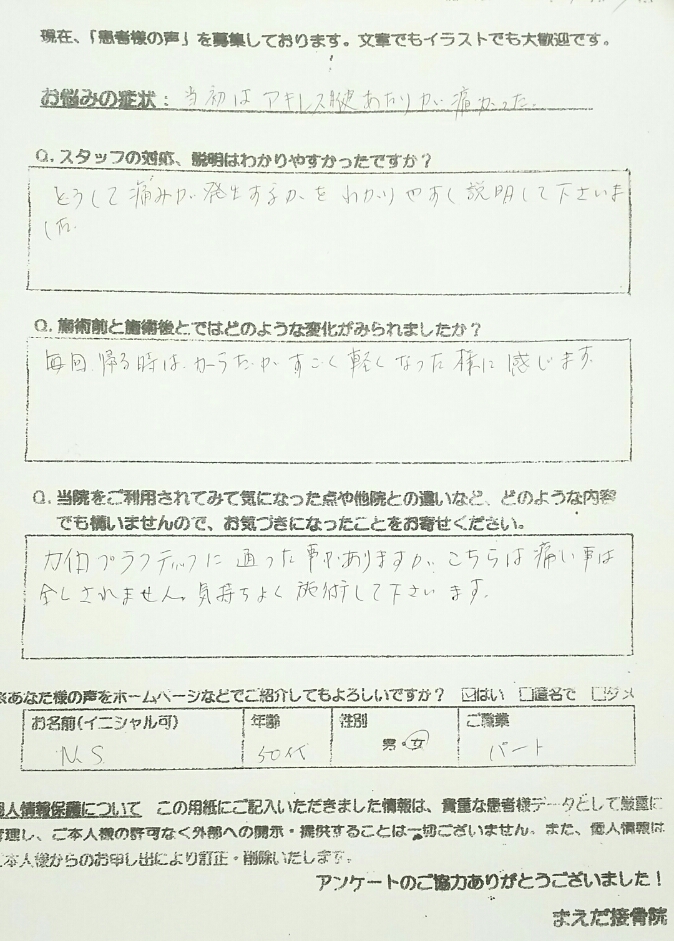 現在、「患者様の声」を募集しております。文章でもイラストでも大歓迎です。
お悩みの症状: 当初はアキレス腱あたりが痛かった。
Q.スタッフの対応、説明はわかりやすかったですか?
どうして痛みが発生するかをわかりやすく説明して下さいま
した。
Q.施術前と施術後とではどのような変化がみられましたか?
毎回、帰る時は、からだがすごく軽くなった様に感じます。
Q.当院をご利用されてみて気になった点や他院との違いなど、どのような内容
でも構いませんので、お気づきになったことをお寄せください。
カイロプラクティックに通った事がありますが、こちらは痛い事は
全くされません。気持ちよく施術して下さいます。
※あなた様の声をホームページなどでご紹介してもよろしいですか? ☑はい □匿名で □ダメ
お名前(イニシャル可) 年齢 性別 ご職業
N.S 50代 男・女 パート
個人情報保護について この用紙にご記入いただきました情報は、貴重な患者様データとして厳重に
管理し、ご本人様の許可なく外部への開示・提供することは一切ございません。また、個人情報は
ご本人様からのお申し出により訂正・削除いたします。
アンケートのご協力ありがとうございました!
まえだ接骨院